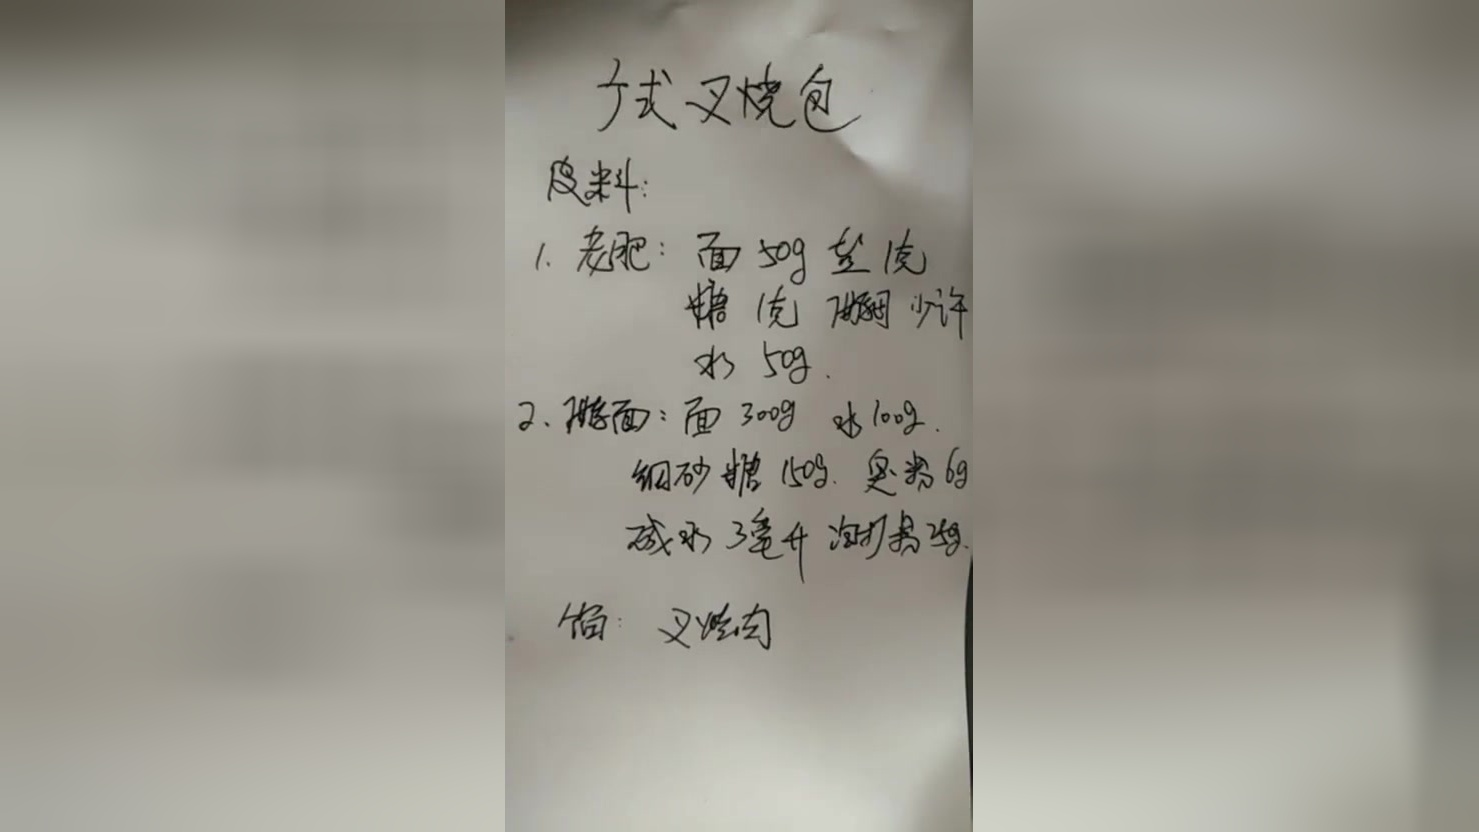 广式叉烧包
皮料:
1. 老肥: 面 50g 盐 1克
糖 1克 酵母 少许
水 50g.
2. 酵面: 面 300g 水 100g.
细砂糖 150g. 臭粉 6g
碱水 3毫升 泡打粉 25g.
馅: 叉烧肉